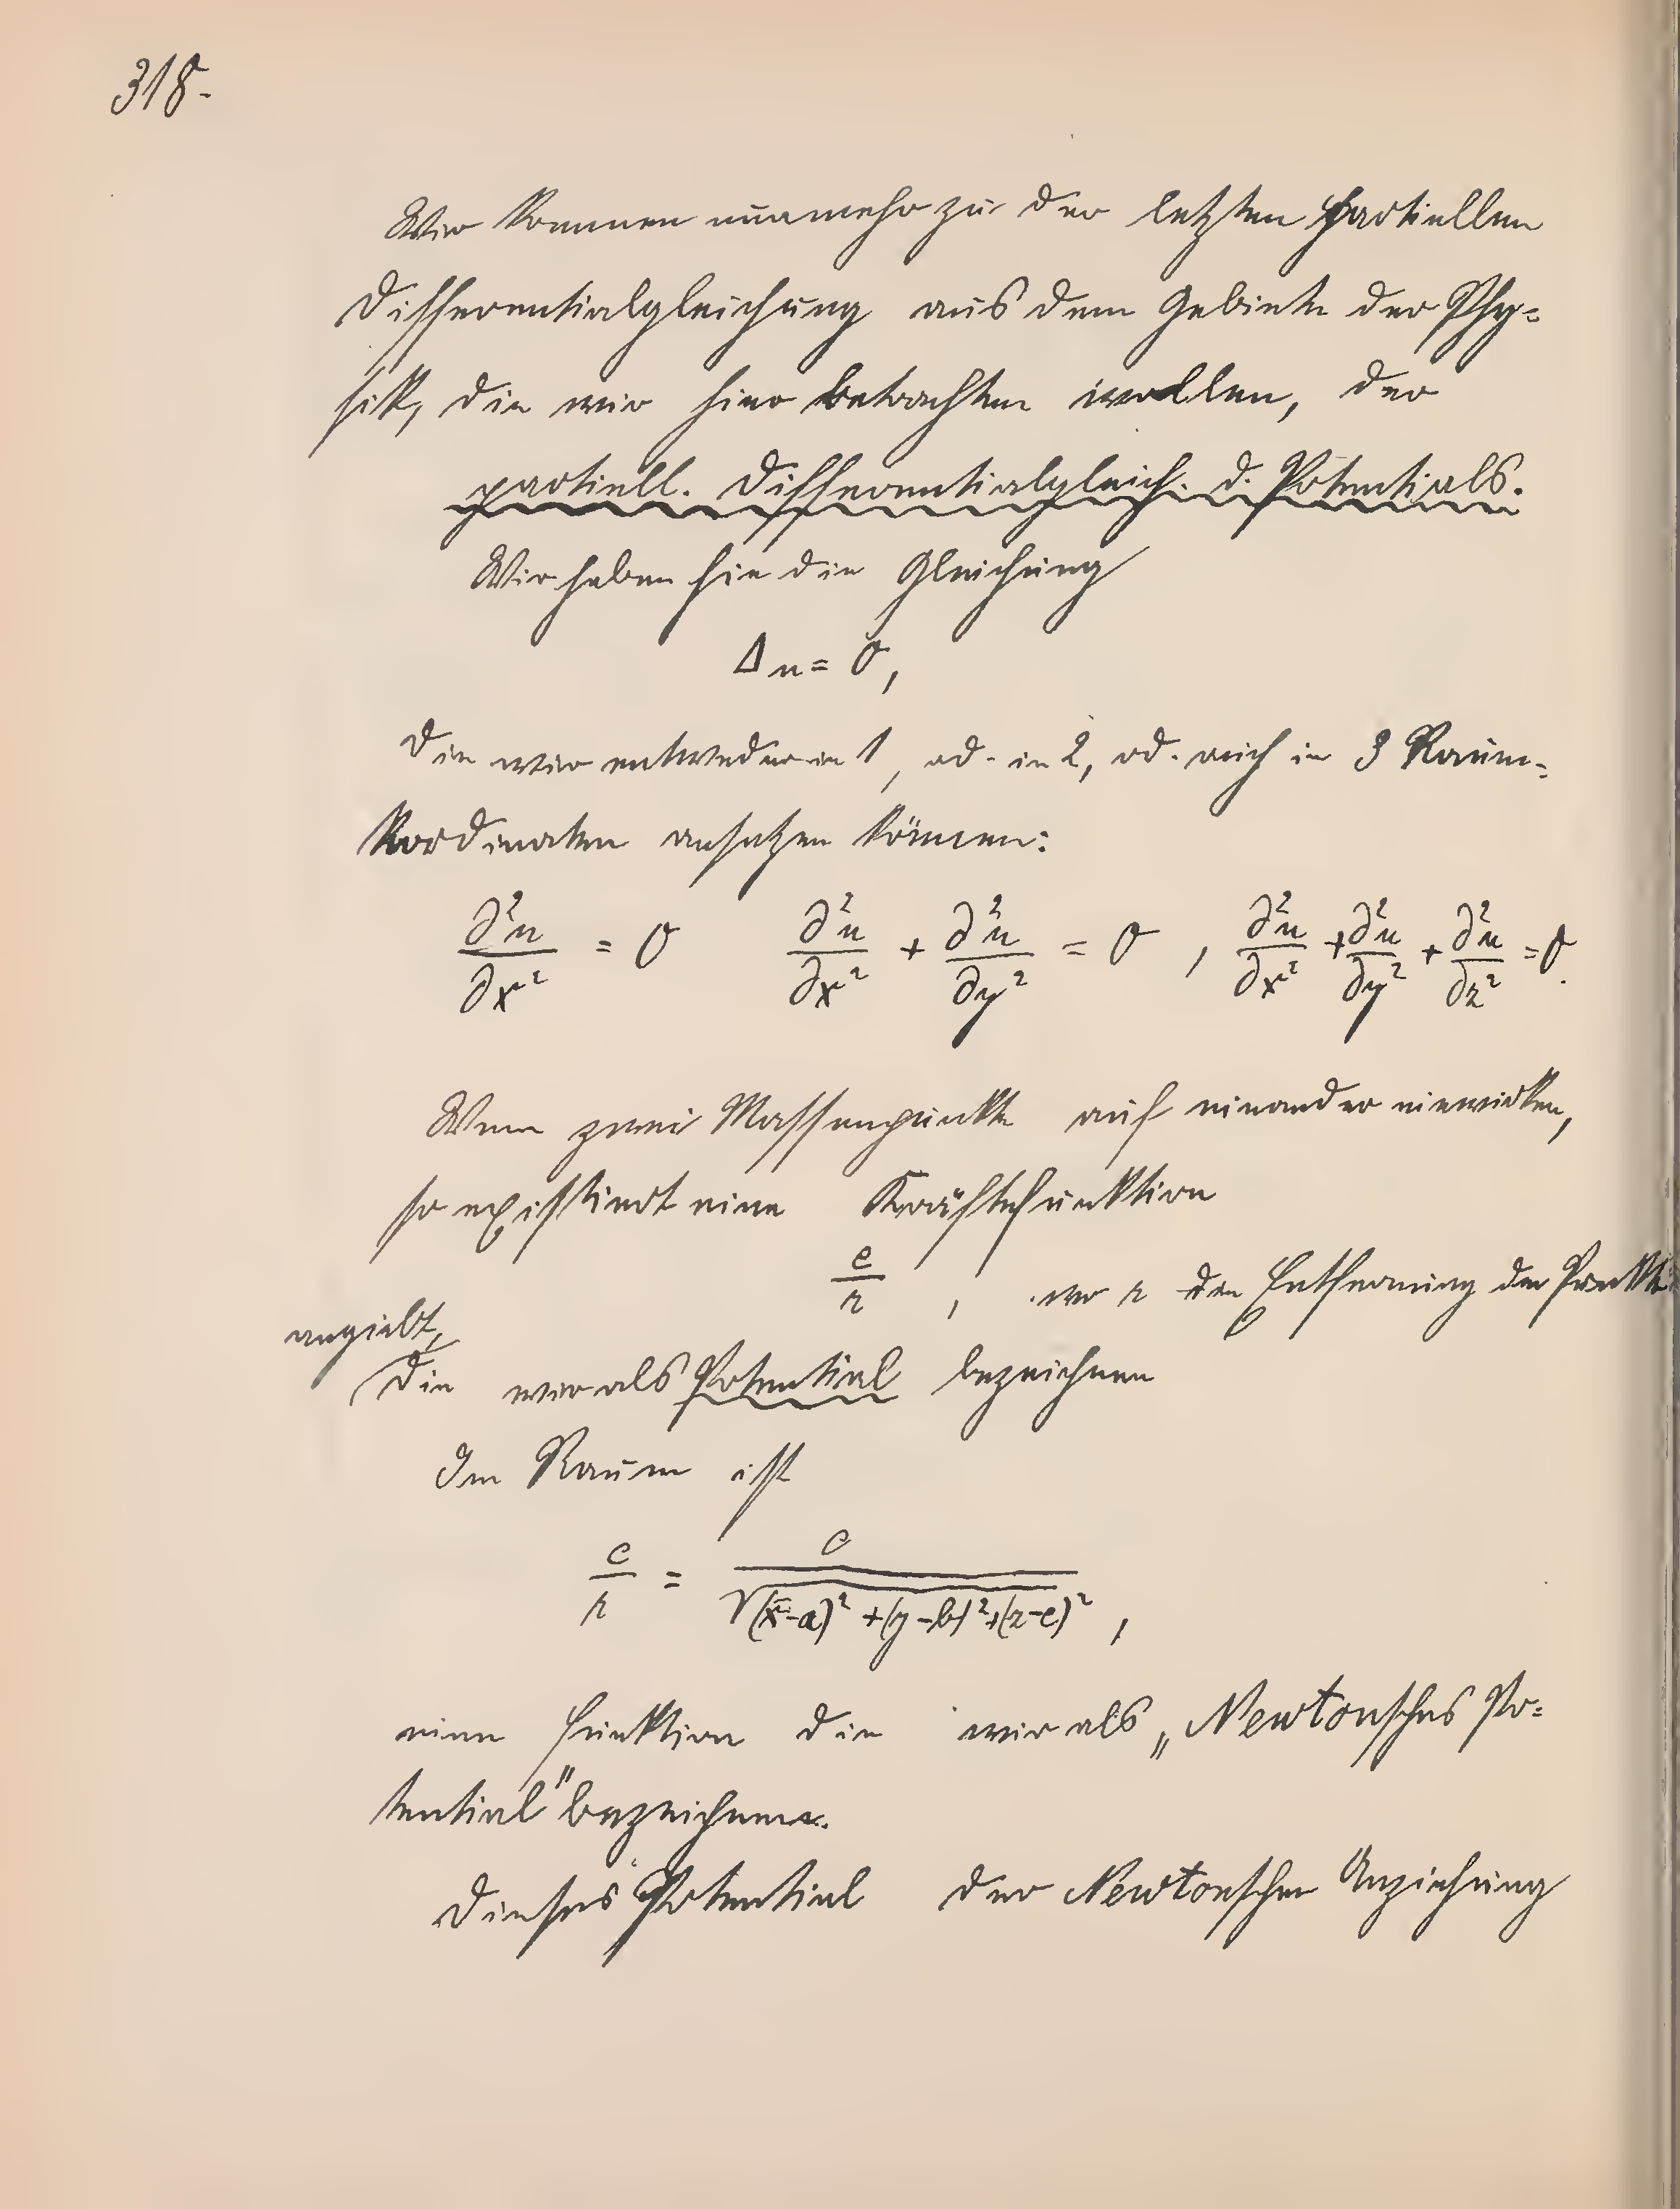 318.
Wir kommen nunmehr zu der letzten partiellen
Differentialgleichung aus dem Gebiete der Phy-
sik, die wir hier betrachten wollen, der
partiell. Differentialgleich. d. Potentials.
Wir haben hie die Gleichung
Δu = 0,
die wir entweder in 1, od. in 2, od. auch in 3 Raum-
kordinaten ansetzen können:
∂²u/∂x² = 0 ∂²u/∂x² + ∂²u/∂y² = 0, ∂²u/∂x² + ∂²u/∂y² + ∂²u/∂z² = 0.
Wenn zwei Massenpunkte auf einander einwirken,
so existiert eine Kräftefunktion
c/r, wo r die Entfernung der Punkte
angiebt,
die wir als Potential bezeichnen
Im Raum ist
c/r = c/√(x-a)² + (y-b)² + (z-c)²,
eine Funktion die wir als „Newtonsches Po-
tential" bezeichnen.
Dieses Potential der Newtonschen Anziehung